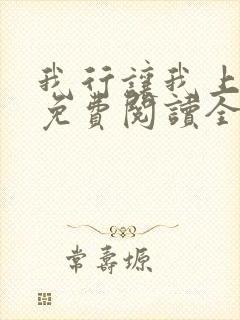 我行讓我上
免費閱讀全
常壽塬